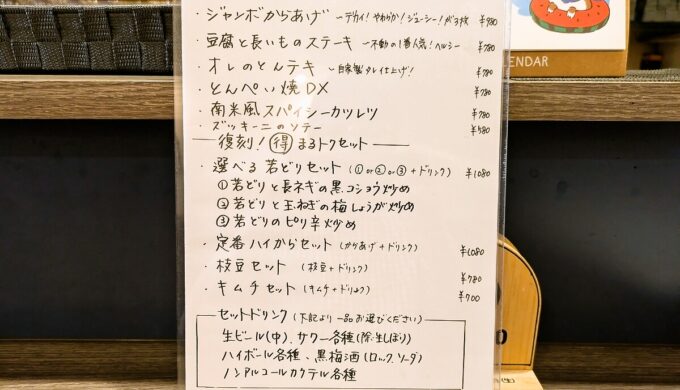 ・ジャンボからあげ ～デカイ!やわらか!ジューシー!が3枚 ¥980
・豆腐と長いものステーキ ～不動の1番人気!ヘルシー ¥780
・オレのとんテキ ～自家製タレ仕上げ! ¥780
・とんぺい焼DX ¥780
・南米風スパイシーカツレツ ¥780
・ズッキーニのソテー ¥580
復刻! 得 まるトクセット
・選べる若どりセット (①or②or③+ドリンク) ¥1080
①若どりと長ネギの黒コショウ炒め
②若どりと玉ねぎの梅しょうが炒め
③若どりのピリ辛炒め
・定番ハイからセット (からあげ+ドリンク) ¥1080
・枝豆セット (枝豆+ドリンク) ¥780
・キムチセット (キムチ+ドリンク) ¥700
セットドリンク (下記より一品お選びください)
生ビール(中)、サワー各種(除:生しぼり)
ハイボール各種、黒梅酒(ロック、ソーダ)
ノンアルコールカクテル各種
ENDAR